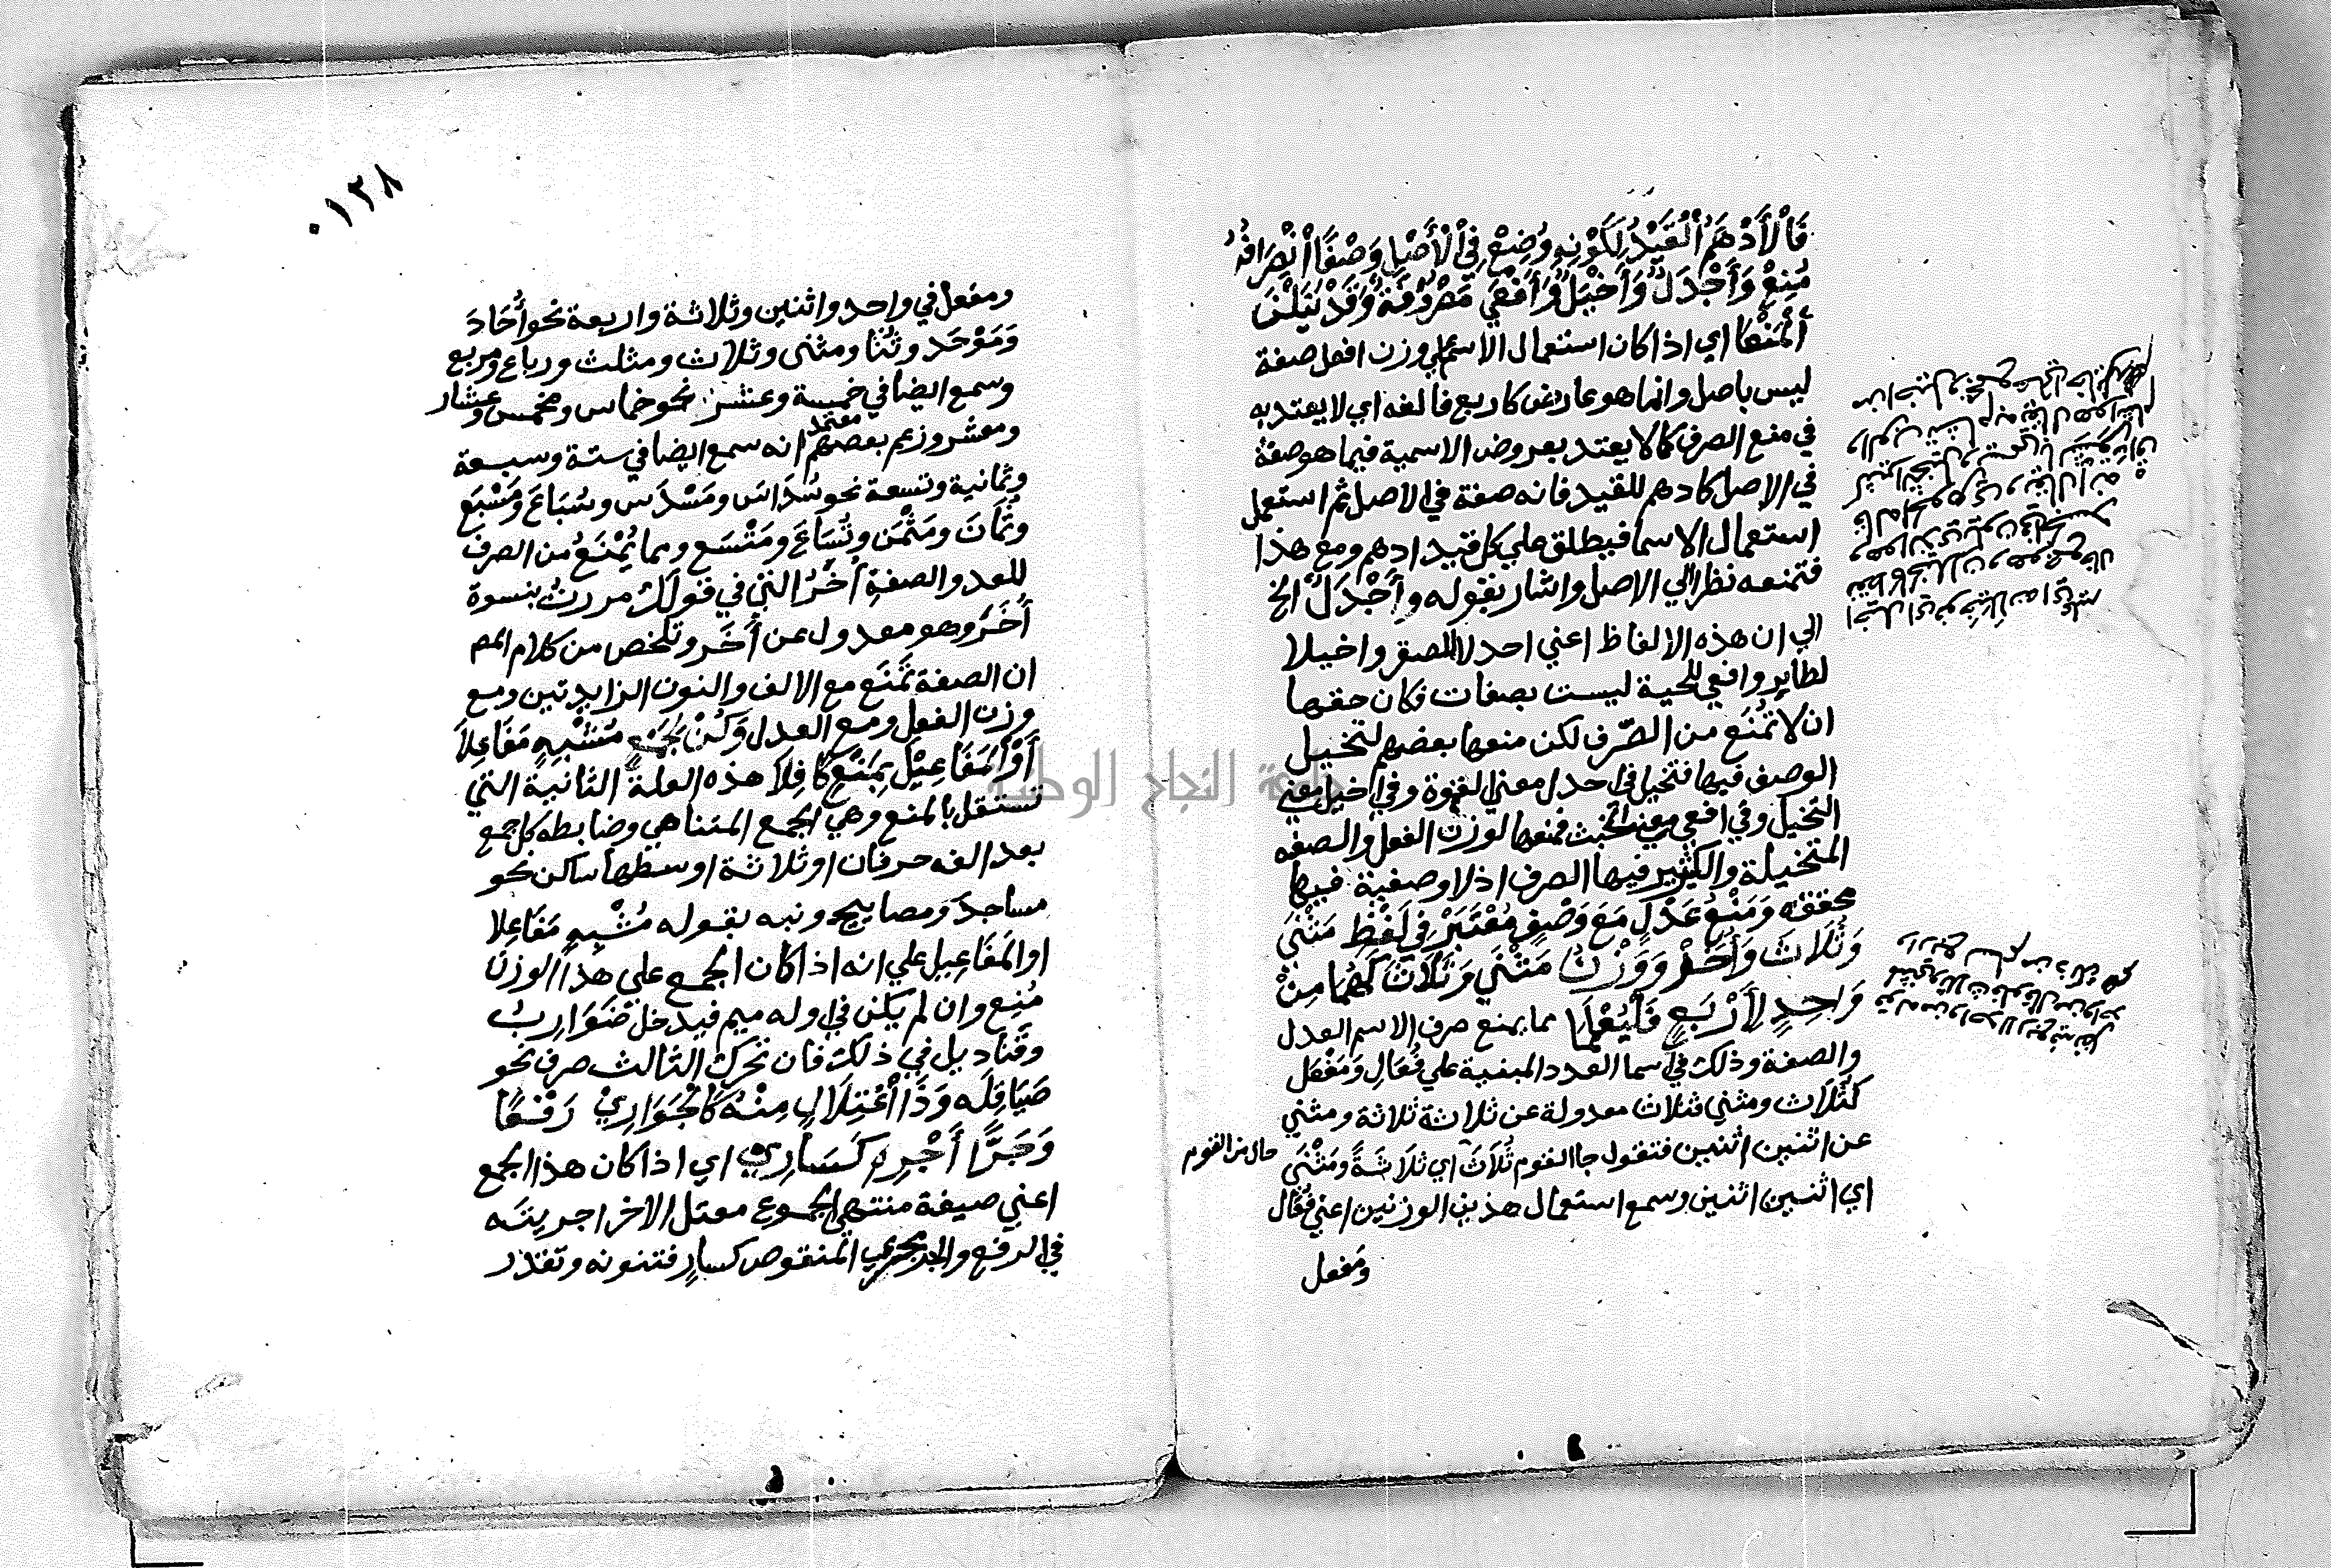 فَالْأَدْهَمُ الْقَيْدُ لِكَوْنِهِ وُضِعْ فِي الْأَصْلِ وَصْفًا انْصِرَافُهُ
مُنِعْ وَأَجْدَلٌ وَأَخْيَلٌ وَأَفْعَي مَصْرُوفَةٌ وَقَدْ يَنَلْنَ
الْمَنْعَا اي اذا كان استعمال الاسم علي وزن افعل صفة
ليس باصل وانما هو عارض كاربع فالغه اي لا يعتد به
في منع الصرف كما لا يعتد بعروض الاسمية فيما هو صفة
في الاصل كادهم للقيد فانه صفة في الاصل ثم استعمل
استعمال الاسما فيطلق علي كل قيد ادهم ومع هذا
فتمنعه نظرا الي الاصل واشار بقوله وأَجْدَلٌ الخ
الي ان هذه الالفاظ اعني اجدلا للصقر واخيلا
لطاير وافعي للحية ليست بصفات فكان حقها
ان لا تُمنَع من الصّرف لكن منعها بعضهم لتخيل
الوصف فيها فتخيل في اجدل معني القوة وفي اخيل معني
التخيل وفي افعي معني الخبث فمنعها لوزن الفعل والصفه
المتخيلة والكثير فيها الصرف اذ لا وصفية فيها
محققه وَمَنْعُ عَدْلٍ مَعَ وَصْفٍ مُعْتَبَرْ فِي لَفْظِ مَثْنَي
وَثُلَاثَ وَأُخَرْ وَوَزْنُ مَثْنَي وَثُلَاثَ كَهُمَا مِنْ
وَاحِدٍ لِأَرْبَعٍ فَلْيُعْلَمَا مما يمنع صرف الاسم العدل
والصفة وذلك في اسما العدد المبنية علي فُعَالِ وَمَفْعَل
كثُلَاث ومثني فثلاث معدولة عن ثلاثة ثلاثة ومثني
عن اثنين اثنين فتقول جا القوم ثُلَاثَ اي ثلَاثَةً ومَثْنَي
حال من القوم
اي اثنين اثنين وسمع استعمال هذين الوزنين اعني فُعَال
ومَفعل
٠١٢٨
ومفعل في واحد واثنين وثلاثة واربعة نحو أُحَادَ
وَمَوْحَد وثُنَا ومثنى وثلاث ومثلث ورباع ومربع
وسمع ايضا في خمسة وعشرة نحو خماس ومخمس وعشار
ومعشر وزعم بعضهم انه سمع ايضا في ستة وسبعة
وثمانية وتسعة نحو سُدَاسَ ومَسْدَس وسُبَاعَ ومَسْبَع
وثُمَانَ ومَثْمَن وتُسَاعَ ومَتْسَع ومما يُمْنَعُ من الصرف
للعدل والصفةِ أُخَرُ التي في قولك مررتُ بنسوة
أُخَرَ وهو معدول عن أَخَر وتلخص من كلام المص
ان الصفة تمنَع مع الالف والنون الزايدتين ومع
وزن الفعل ومع العدل وَكُنْ لِجَمْعٍ مُشْبِهٍ مَفَاعِلَا
أَوِ الْمَفَاعِيْلَ بِمَنْعٍ كَافِلَا هذه العلة الثانية التي
تستقل بالمنع وهي الجمع المتناهي وضابطه كل جمع
بعد الفه حرفان او ثلاثة اوسطها ساكن نحو
مساجد ومصابيح ونبه بقوله مُشْبِهٍ مَفَاعِلا
او المَفَاعِيل علي انه اذا كان الجمع علي هذا الوزن
مُنِع وان لم يكن في اوله ميم فيدخل ضَوَارِبُ
وقَناديل في ذلك فان تحرك الثالث صرف نحو
صَيَاقِلَه وَذَا اعْتِلَالٍ مِنْهُ كَالْجَوَارِيْ رَفْعًا
وَجَرًّا أَجْرِهِ كَسَارِي اي اذا كان هذا الجمع
اعني صيغة منتهي الجموع معتل الاخر اجريتَه
في الرفع والجر مجري المنقوص كسارٍ فتنونه وتقدر